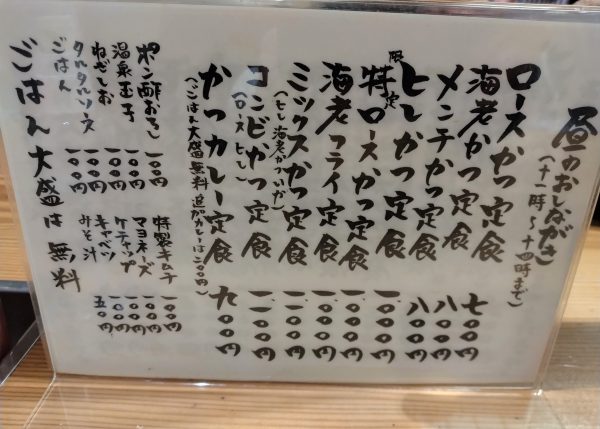 昼のおしながき
(十一時〜十四時まで)
ロースかつ定食 七〇〇円
海老かつ定食 八〇〇円
メンチかつ定食 八〇〇円
ヒレかつ定食 一〇〇〇円
限定
特ロースかつ定食 一〇〇〇円
海老フライ定食 一〇〇〇円
ミックスかつ定食 一〇〇〇円
(ヒレ 海老かつ いか)
コンビかつ定食 一一〇〇円
(ロース ヒレ)
かつカレー定食 九〇〇円
(ごはん大盛無料 追加カレーは二〇〇円)
ポン酢おろし 一〇〇円
温泉玉子 一〇〇円
ねぎしお 一〇〇円
タルタルソース 一〇〇円
ごはん 一〇〇円
特製キムチ 一〇〇円
マヨネーズ 一〇〇円
ケチャップ 一〇〇円
キャベツ 一〇〇円
みそ汁 五〇円
ごはん大盛は無料